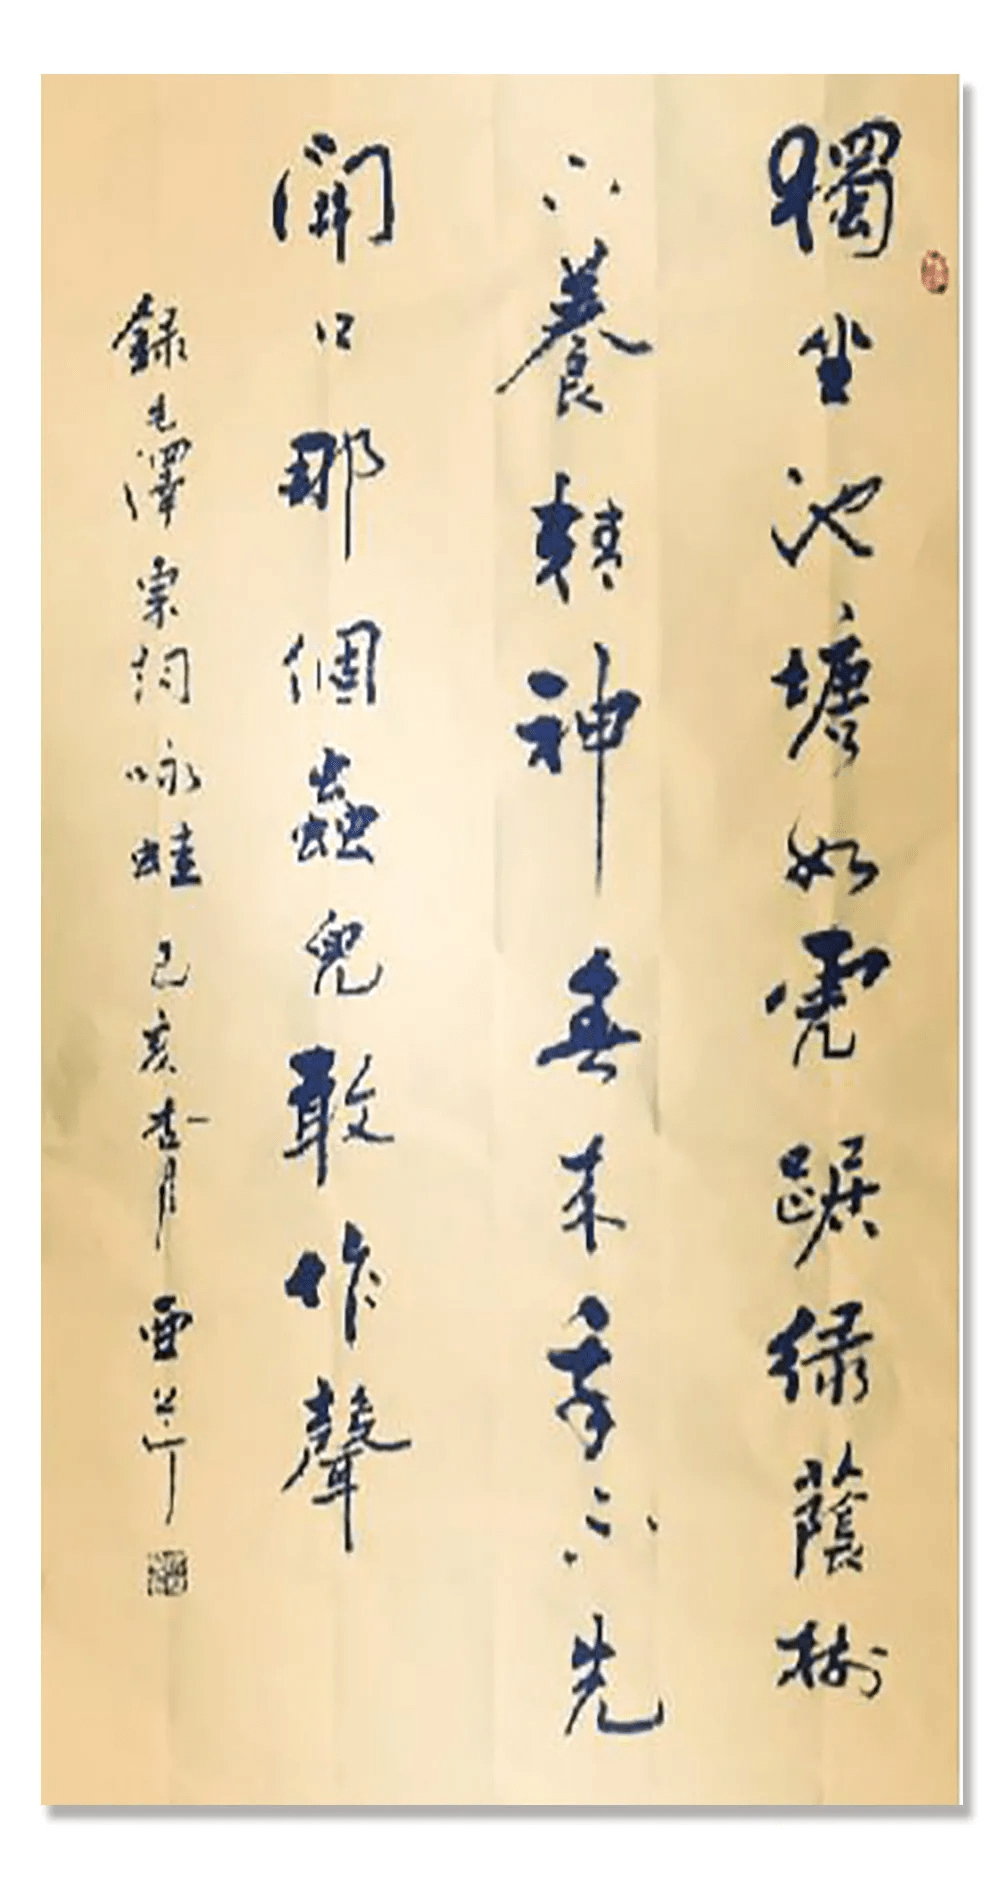 獨坐池塘如虎踞绿蔭樹
下養精神春来我不先
開口那個蟲兒敢作聲
錄毛澤東詞咏蛙己亥杏月